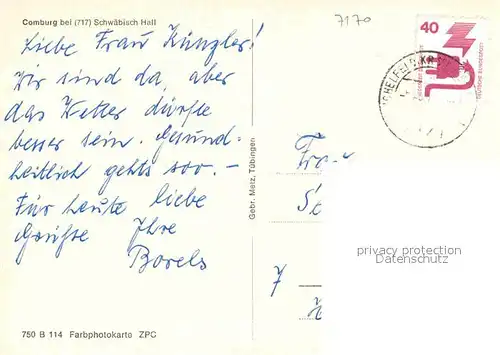 Comburg bei (717) Schwäbisch Hall
7170
Liebe Frau Künzler!
Wir sind da, aber
das Wetter dürfte
besser sein. Gesund-
heitlich gehts soo. –
Für heute liebe
Grüße Ihre
Borels
Gebr. Metz, Tübingen
40
DEUTSCHE BUNDESPOST
Fra
7
privacy protection
Datenschutz
750 B 114 Farbphotokarte ZPC